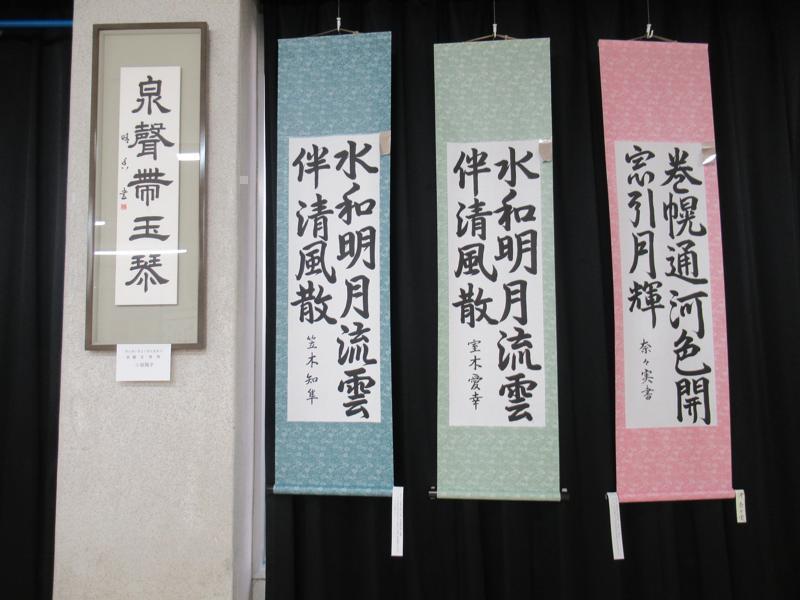 泉聲帶玉琴
水和明月流雲
伴清風散
笠木知隼
水和明月流雲
伴清風散
室木愛幸
巻幌通河色開
窓引月輝
奈々実書